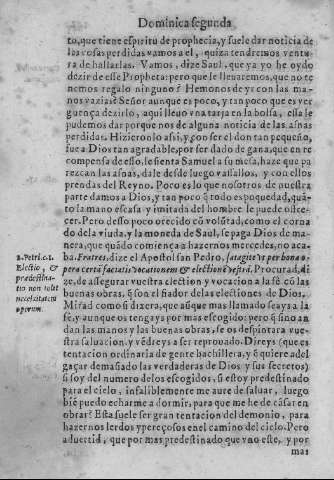 Dominica segunda
to, que tiene espiritu de prophecia, y suele dar noticia de
las cosas perdidas vamos a el, quiza tendremos ventu
ra de hallarlas. Vamos, dize Saul, que ya yo he oydo
dezir de esse Propheta: pero que le llevaremos, que no te
nemos regalo ninguno? Hemonos de yr con las ma-
nos vazias? Señor aunque es poco, y tan poco que es ver
guença dezirlo, aqui llevo vna tarja en la bolsa, essa le
pudemos dar porque nos de alguna noticia de las asnas
perdidas. Hizieronlo assi, y con ser el don tan pequeño,
fue a Dios tan agradable, por ser dado de gana, que en re
compensa de esso, le sienta Samuel a su mesa, haze que pa
rezcan las asnas, dale desde luego vassallos, y con ellos
prendas del Reyno. Poco es lo que nosotros de nuestra
parte damos a Dios, y tan poco q̃ todo es poquedad, quã-
to la mano escasa y limitada del hombre le puede offre-
cer. Pero de esso poco ofrecido cõ volũtad, como el corna
do de la viuda, y la moneda de Saul, se paga Dios de ma-
nera, que quãdo comiença a hazernos mercedes, no aca-
ba. Fratres, dize el Apostol san Pedro, satagite vt per bona o-
pera certã faciatis vocationem & electionē vestrã. Procurad, di
ze, de assegurar vuestra election y vocacion a la fè cõ las
buenas obras, q̃ son el fiador de las electiones de Dios.
Mirad como si dixera, que aũque mas llamado seays a la
fe, y aunque os tengays por mas escogido: pero q̃ sino an
dan las manos y las buenas obras, se os despintara vue-
stra saluacion, y vēdreys a ser reprouado. Direys (que es
tentacion ordinaria de gente bachillera, y q̃ quiere adel
gaçar demasiado las verdaderas de Dios y sus secretos)
si soy del numero de los escogidos, si estoy predestinado
para el cielo, infaliblemente me aure de saluar, luego
biē puedo echarme a dormir, para que me he de cãsar en
obrar? Esta suele ser gran tentacion del demonio, para
hazernos lerdos y pereçosos en el camino del cielo. Pero
aduertid, que por mas predestinado que vno este, y por
mas
2. Petri. c. 1.
Electio, &
prædestina-
tio non tollit
necessitatem
operum.